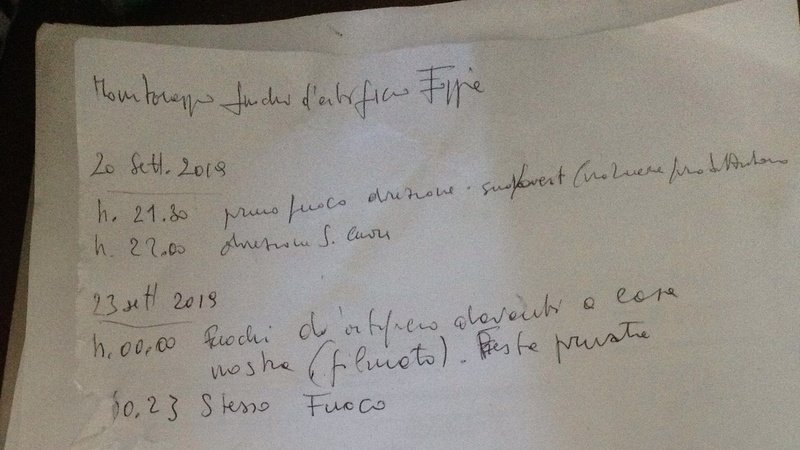 Monitoraggio fuochi d'artificio Foggia
20 Sett. 2019
h. 21.30 primo fuoco direzione sudovest (
h. 22.00 direzione S.
23 sett 2019
h. 00,00 Fuochi d'artificio davanti a casa
nostra (filmato). Festa privata
0.23 Stesso Fuoco